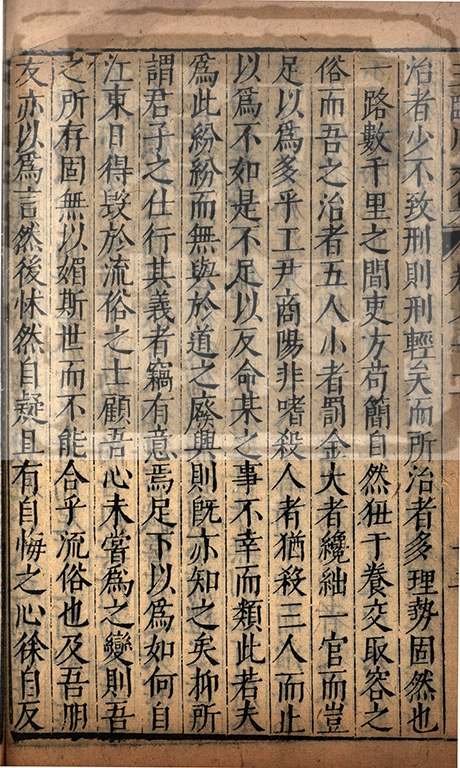 治者少不致刑則刑輕矣而所治者多理勢固然也
一路數千里之間吏方苟簡自然狃于養交取容之
俗而吾之治者五人小者罰金大者纔絀一官而豈
足以爲多乎工尹商陽非嗜殺人者猶殺三人而止
以爲不如是不足以反命某之事不幸而類此若夫
爲此紛紛而無與於道之廢興則旣亦知之矣抑所
謂君子之仕行其義者竊有意焉足下以爲如何自
江東日得毀於流俗之士顧吾心未嘗爲之變則吾
之所存固無以媚斯世而不能合乎流俗也及吾朋
友亦以爲言然後怵然自疑且有自悔之心徐自反